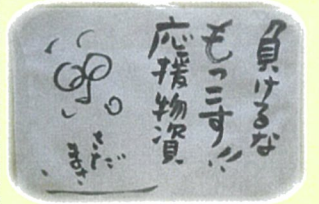 負けるな
もっこす!!
応援物資
さだ
まさし